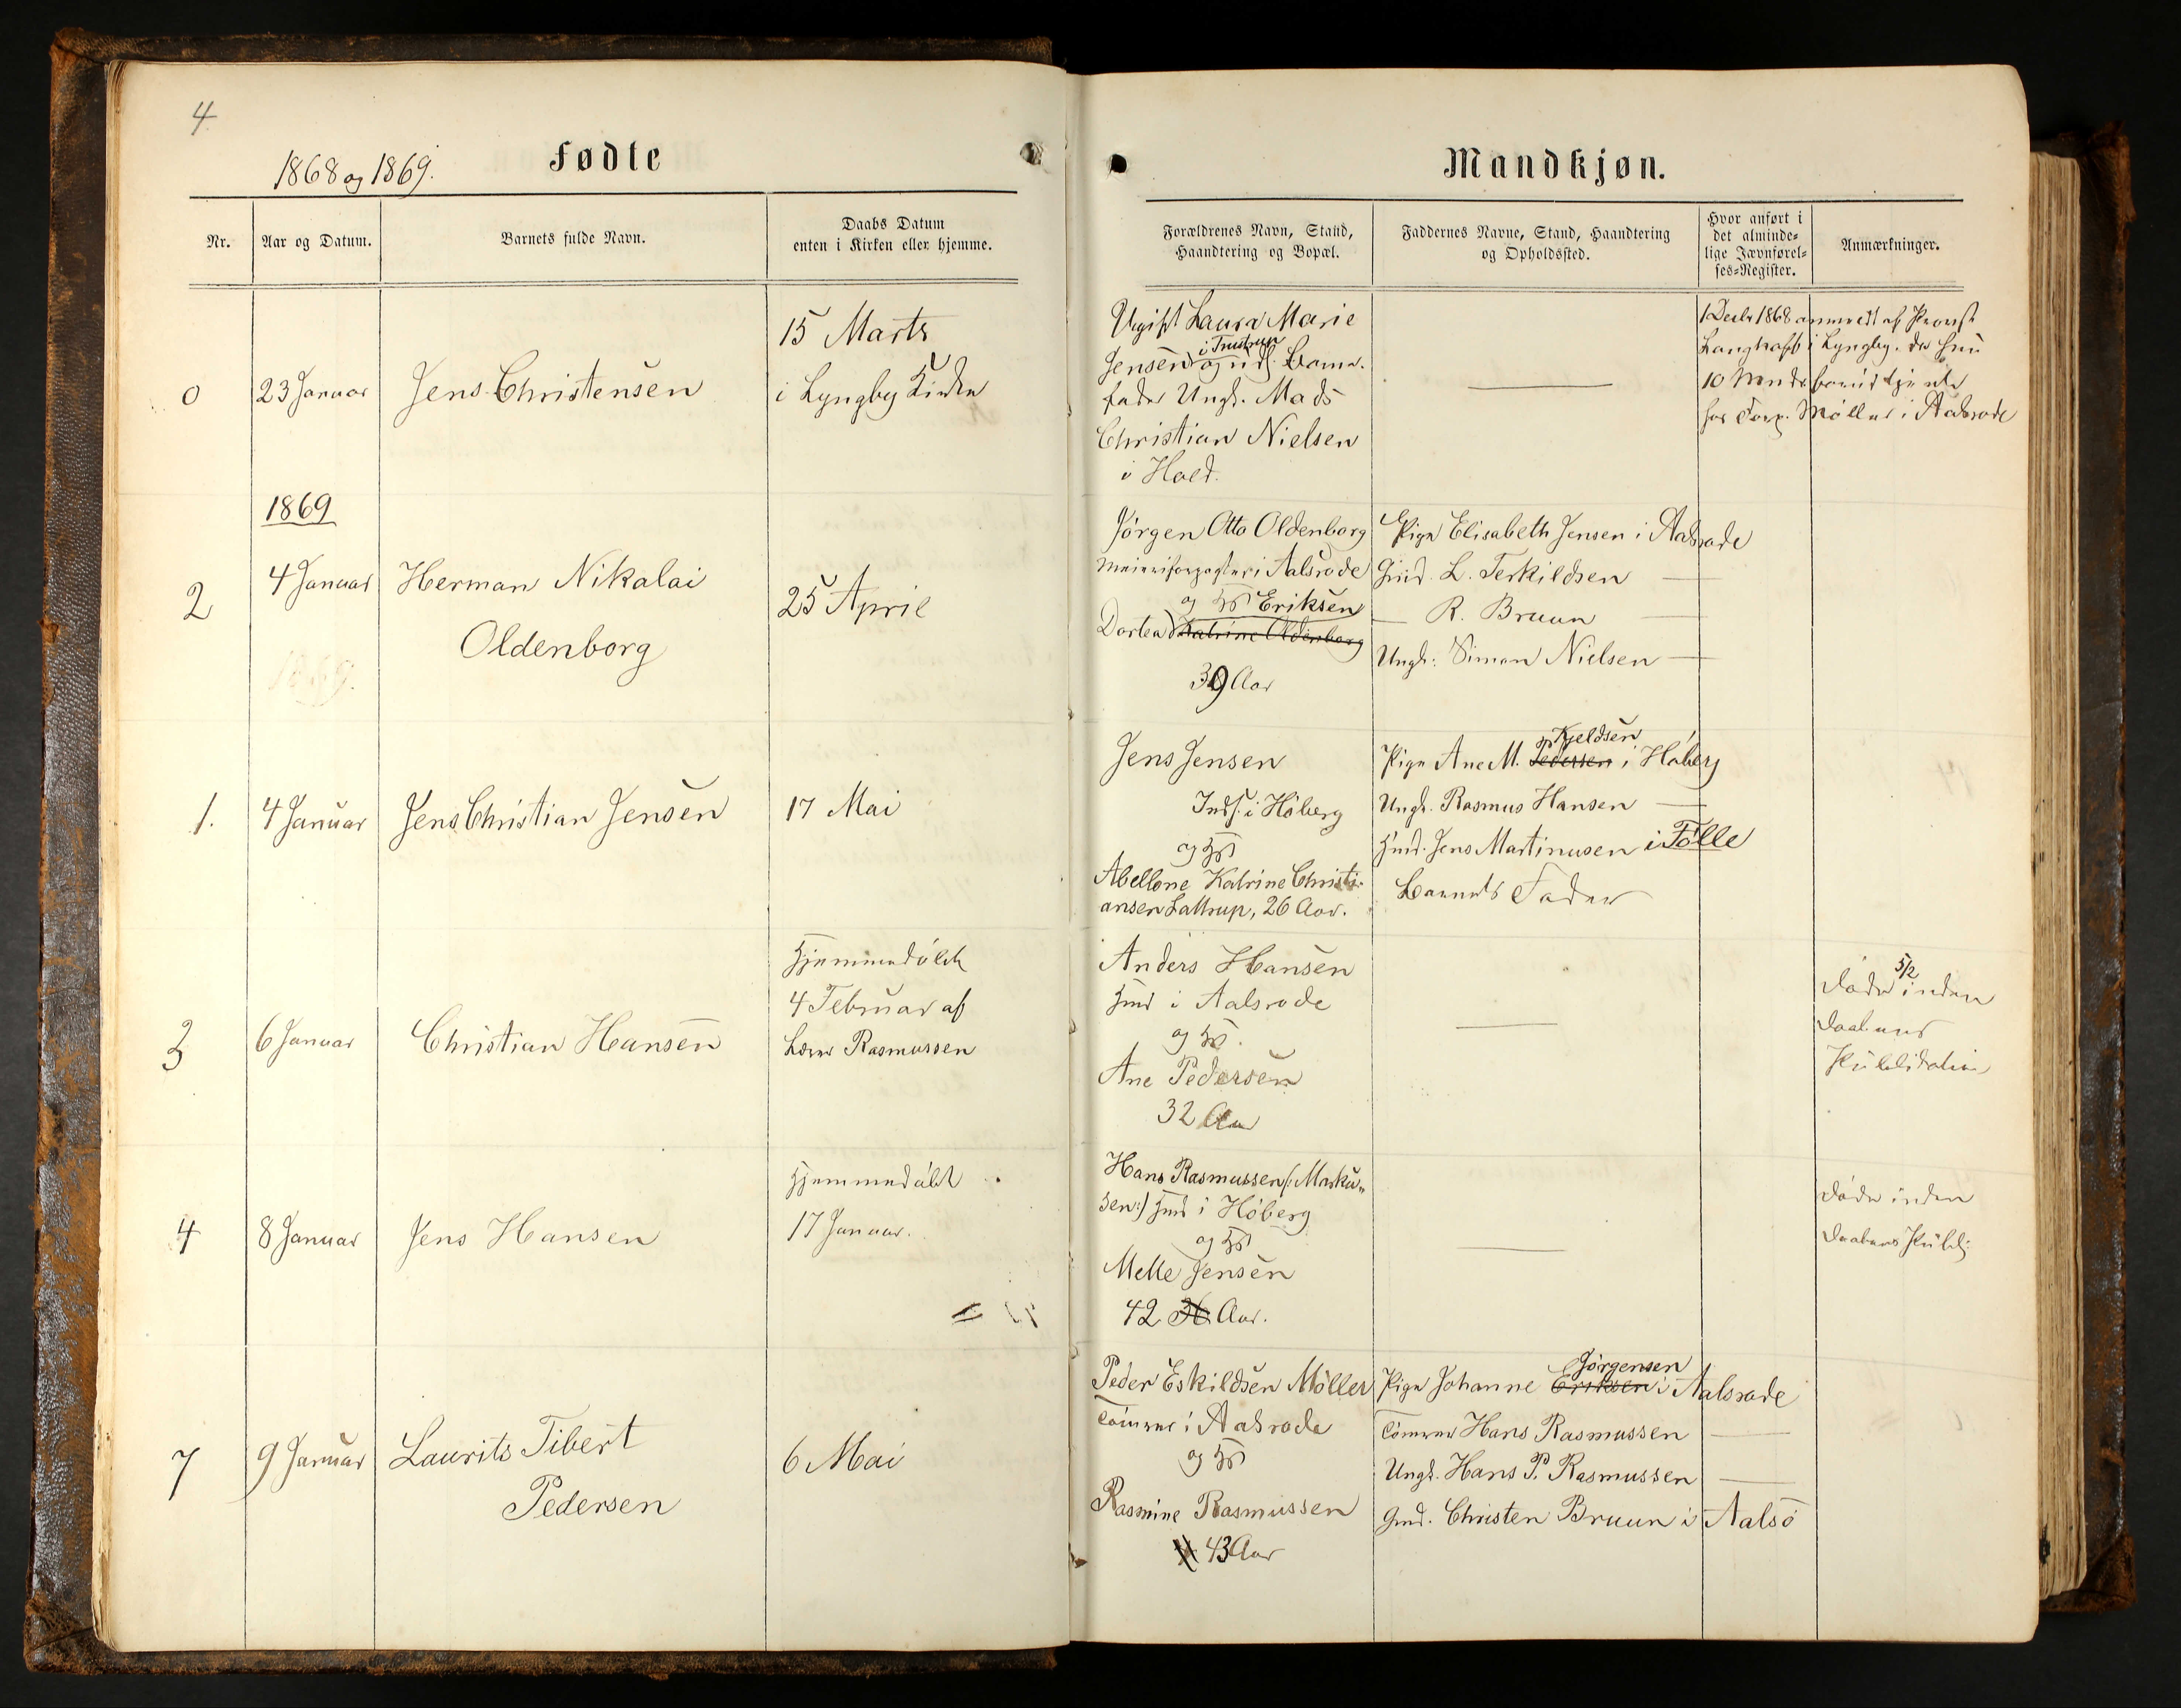 4
1868 og 1869.
Fødte
Nr.
Aar og Datum.
Barnets fulde Navn.
Daabs Datum
enten i Kirken eller hjemme.
0
23 Januar
Jens Christensen
15 Marts
i Lyngby Kirke
1869
2
4 Januar
Herman Nikolai
Oldenborg
25 April
1869.
1.
4 Januar
Jens Christian Jensen
17 Mai
3
6 Januar
Christian Hansen
Hjemmedøbt
4 Februar af
Lærer Rasmussen
4
8 Januar
Jens Hansen
Hjemmedøbt
17 Januar.
7
9 Januar
Laurits Tibert
Pedersen
6 Mai
Mandkjøn.
Forældrenes Navn, Stand,
Haandtering og Bopæl.
Faddernes Navne, Stand, Haandtering
og Opholdssted.
Hvor anført i
det alminde-
lige Jævnførel-
ses-Register.
Anmærkninger.
Ugift Laura Marie
i Trustrup
Jensen og udl. Barne-
fader Ungk. Mads
Christian Nielsen
i Hoed.
1 Decbr 1868 anmeldt af Provst
i Lyngby, da hun
10 Mndr
hos Forp. Møller i Aalsrode
Jørgen Otto Oldenborg
Meieriforpagter i Aalsrode
og H Eriksen
Dortea Katrine Oldenborg
39 Aar
Pige Elisabeth Jensen i Aalsrode
Gmd. L. Terkildsen —
— R. Bruun —
Ungk: Simon Nielsen —
Jens Jensen
Inds. i Høberg
og H
Abellone Katrine Christi-
ansen Lattrup, 26 Aar.
Kjeldsen
Pige Ane M. Pedersen i Høberg
Ungk. Rasmus Hansen —
Hmd. Jens Martinusen i Tølle
Barnets Fader
Anders Hansen
Hmd i Aalsrode
og H.
Ane Pedersen
32 Aar
—
5/2
Døde inden
Daabens
Publikation
Hans Rasmussen (: Marku„
sen:) Hmd i Høberg
og H
Mette Jensen
42 36 Aar.
—
Døde inden
Daabens Publ:
Peder Eskildsen Möller
Tømrer i Aalsrode
og H
Rasmine Rasmussen
43 Aar
Jørgensen
Pige Johanne Eriksen i Aalsrode
Tømrer Hans Rasmussen —
Ungk. Hans P. Rasmussen —
Gmd. Christen Bruun i Aalsö